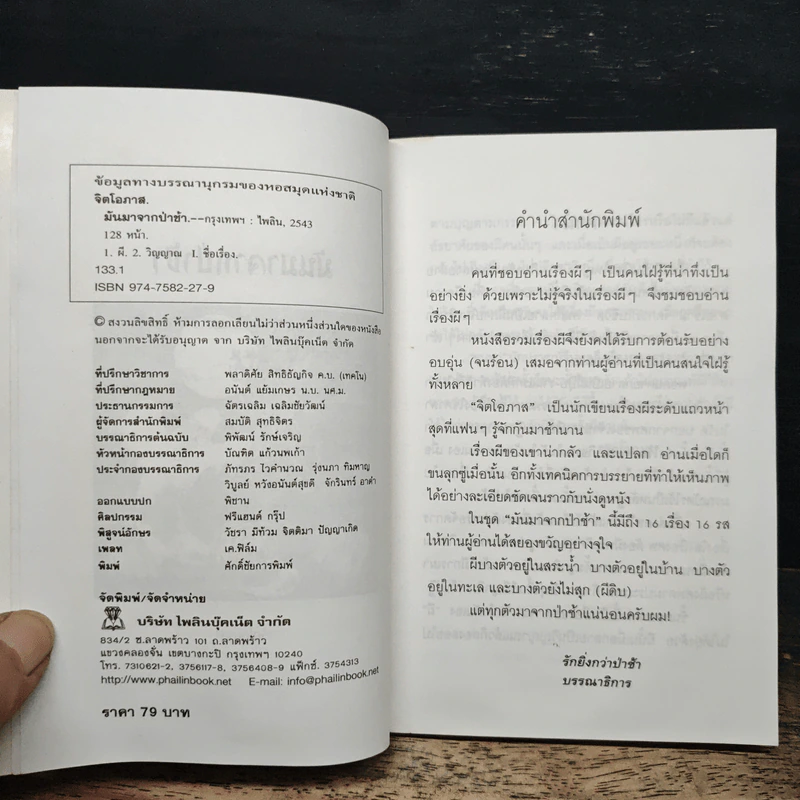 ข้อมูลทางบรรณานุกรมของหอสมุดแห่งชาติ
จิตโอภาส.
มันมาจากป่าช้า.--กรุงเทพฯ : ไพลิน, 2543
128 หน้า.
1. ผี. 2. วิญญาณ I. ชื่อเรื่อง.
133.1
ISBN 974-7582-27-9
© สงวนลิขสิทธิ์ ห้ามการลอกเลียนไม่ว่าส่วนหนึ่งส่วนใดของหนังสือ
นอกจากจะได้รับอนุญาต จาก บริษัท ไพลินบุ๊คเน็ต จำกัด
ที่ปรึกษาวิชาการ พลาดิศัย สิทธิธัญกิจ ค.บ. (เทคโน)
ที่ปรึกษากฎหมาย อนันต์ แย้มเกษร น.บ. นศ.ม.
ประธานกรรมการ ฉัตรเฉลิม เฉลิมชัยวัฒน์
ผู้จัดการสำนักพิมพ์ สมบัติ สุทธิจิตร
บรรณาธิการต้นฉบับ พิพัฒน์ รักษ์เจริญ
หัวหน้ากองบรรณาธิการ บัณฑิต แก้วนพเก้า
ประจำกองบรรณาธิการ ภัทรภร ไวคำนวณ รุ่งนภา ทิมหาญ
วิบูลย์ หวังอนันต์สุขดี จักรินทร์ อาดำ
ออกแบบปก พิชาน
ศิลปกรรม ฟรีแฮนด์ กรุ๊ป
พิสูจน์อักษร วัชรา มีท้วม จิตติมา ปัญญาเกิด
เพลท เค.ฟิล์ม
พิมพ์ ศักดิ์ชัยการพิมพ์
จัดพิมพ์/จัดจำหน่าย
บริษัท ไพลินบุ๊คเน็ต จำกัด
834/2 ซ.ลาดพร้าว 101 ถ.ลาดพร้าว
แขวงคลองจั่น เขตบางกะปิ กรุงเทพฯ 10240
โทร. 7310621-2, 3756117-8, 3756408-9 แฟ็กซ์. 3754313
http://www.phailinbook.net E-mail: info@phailinbook.net
ราคา 79 บาท
คำนำสำนักพิมพ์
คนที่ชอบอ่านเรื่องผีๆ เป็นคนใฝ่รู้ที่น่าทึ่งเป็น
อย่างยิ่ง ด้วยเพราะไม่รู้จริงในเรื่องผีๆ จึงชมชอบอ่าน
เรื่องผีๆ
หนังสือรวมเรื่องผีจึงยังคงได้รับการต้อนรับอย่าง
อบอุ่น (จนร้อน) เสมอจากท่านผู้อ่านที่เป็นคนสนใจใฝ่รู้
ทั้งหลาย
“จิตโอภาส” เป็นนักเขียนเรื่องผีระดับแถวหน้า
สุดที่แฟนๆ รู้จักกันมาช้านาน
เรื่องผีของเขาน่ากลัว และแปลก อ่านเมื่อใดก็
ขนลุกซู่เมื่อนั้น อีกทั้งเทคนิคการบรรยายที่ทำให้เห็นภาพ
ได้อย่างละเอียดชัดเจนราวกับนั่งดูหนัง
ในชุด “มันมาจากป่าช้า” นี้มีถึง 16 เรื่อง 16 รส
ให้ท่านผู้อ่านได้สยองขวัญอย่างจุใจ
ผีบางตัวอยู่ในสระน้ำ บางตัวอยู่ในบ้าน บางตัว
อยู่ในทะเล และบางตัวยังไม่สุก (ผีดิบ)
แต่ทุกตัวมาจากป่าช้าแน่นอนครับผม!
รักยิ่งกว่าป่าช้า
บรรณาธิการ